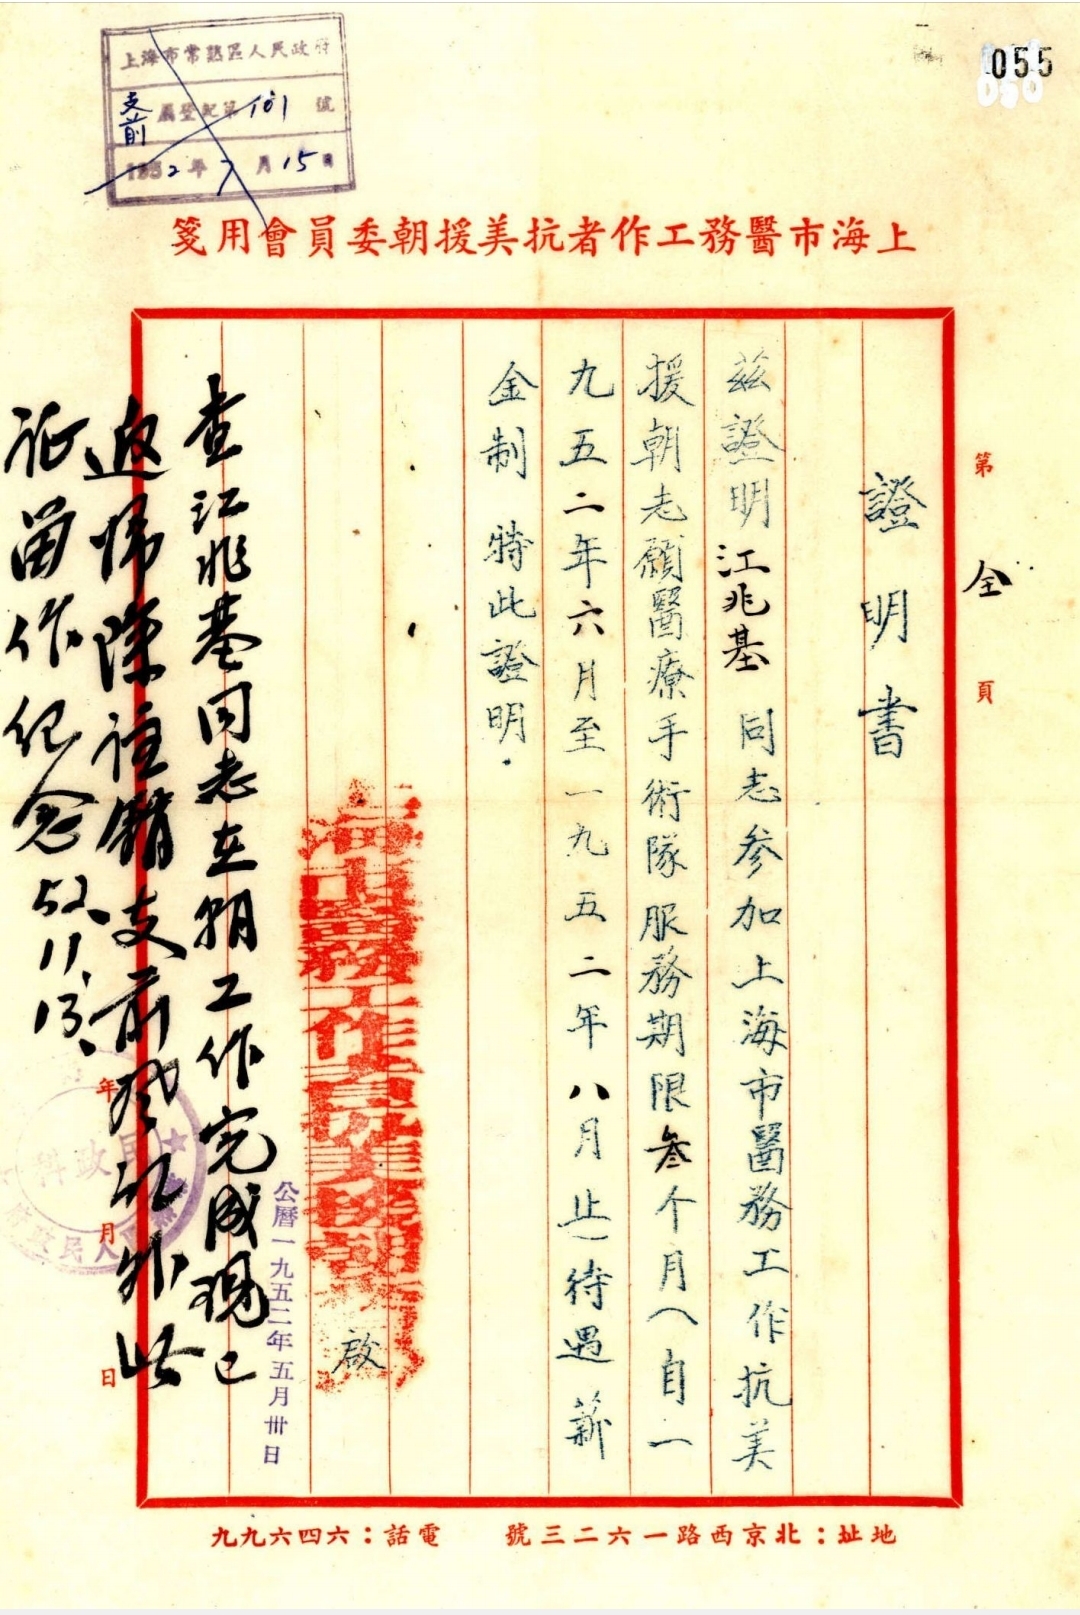 055
上海市常熟區人民政府
支前屬登記第101號
1952年7月15日
上海市醫務工作者抗美援朝委員會用箋
第全頁
證明書
茲證明江兆基同志參加上海市醫務工作抗美
援朝志願醫療手術隊服務期限叁个月(自一
九五二年六月至一九五二年八月止)待遇薪
金制 特此證明.
上海市醫務工作人員抗美援朝
啟
公曆一九五二年五月卅日
查江兆基同志在朝工作完成現已
返歸除註銷支前登記外此
证留作纪念52.11.13.
年月日
民政科
人民政府
地址:北京西路一六二三號 電話:六四六九九